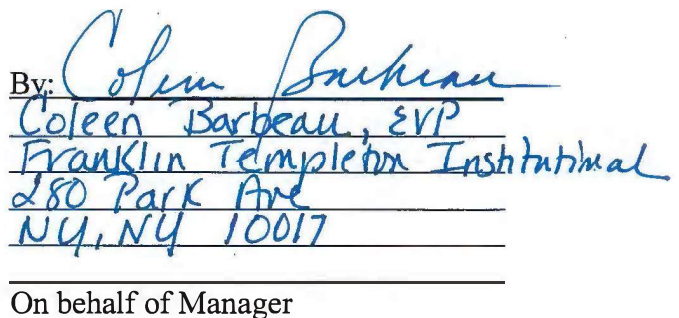 By: Coleen Barbeau
Coleen Barbeau, EVP
Franklin Templeton Institutional
280 Park Ave
NY, NY 10017
On behalf of Manager